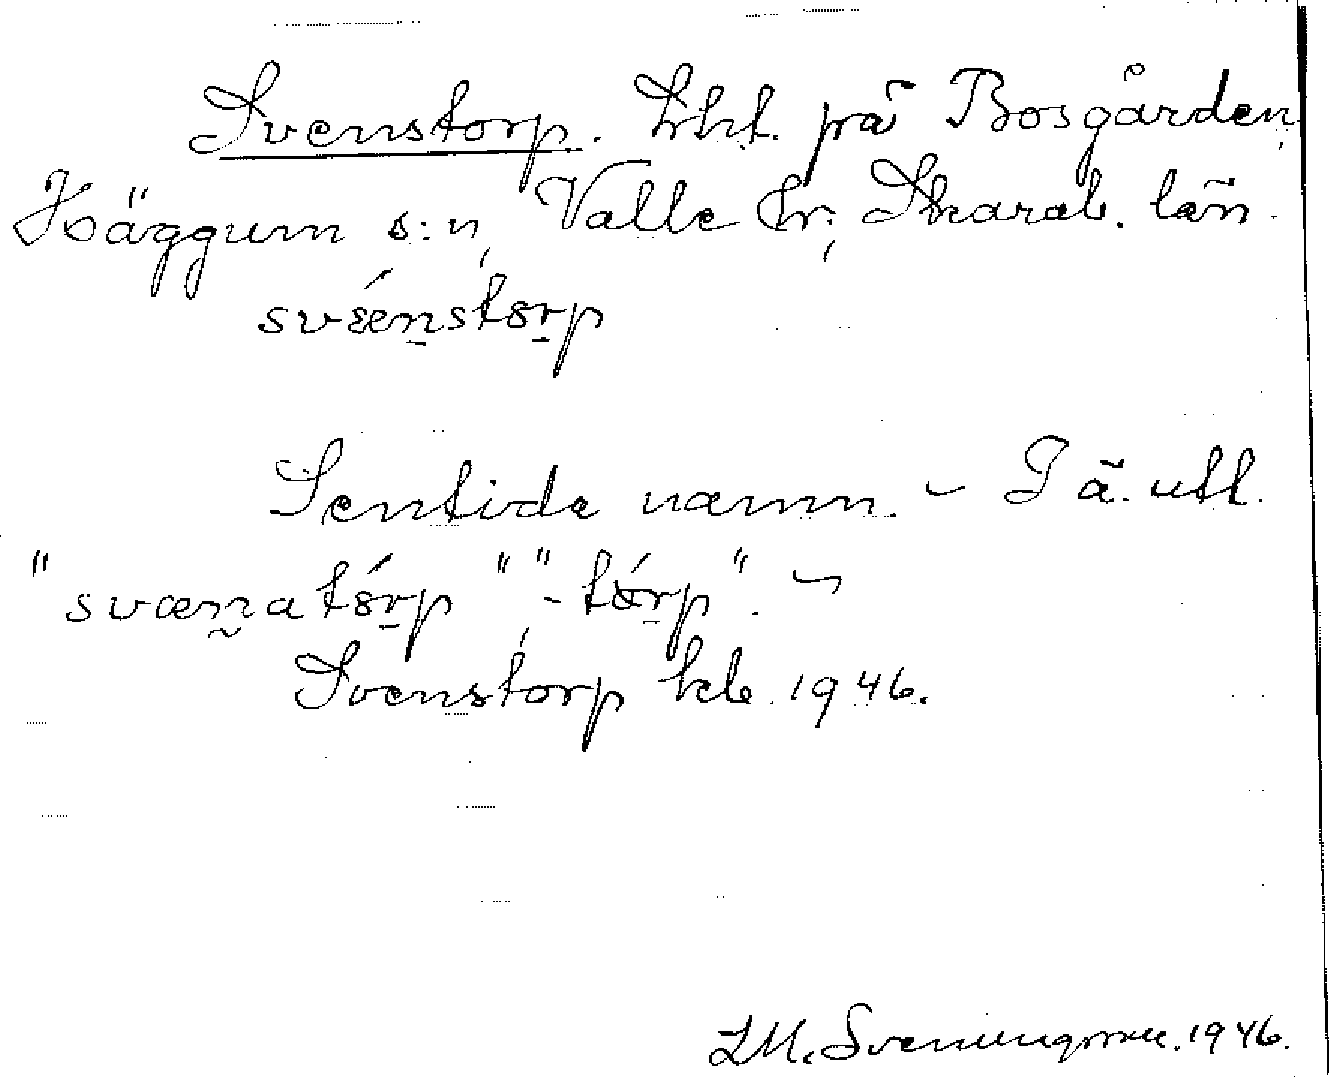 Svenstorp. Lht. på Bosgården,
Häggum s:n, Valle hr; Skarab. län.
svǽnstorp
Sentida namn. – I ä. utt.
"svænatórp", "-tórp". –
Svenstorp kb 1946.
L.M. Svenungsson. 1946.